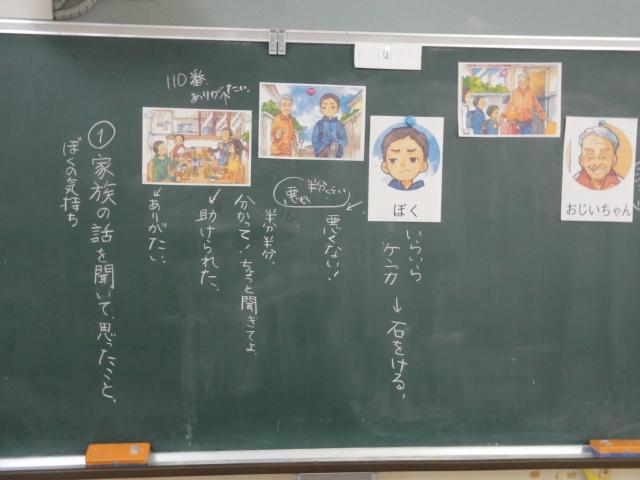 おじいちゃん
ぼく
いらいら
ケンカ → 石をける。
悪くない!
半分くらい
悪い
半分半分。
分かって!ちょっと聞きてよ。
助けられた。
ありがたい。
110番、
ありがたい。
① 家族の話を聞いて、思ったこと、
ぼくの気持ち